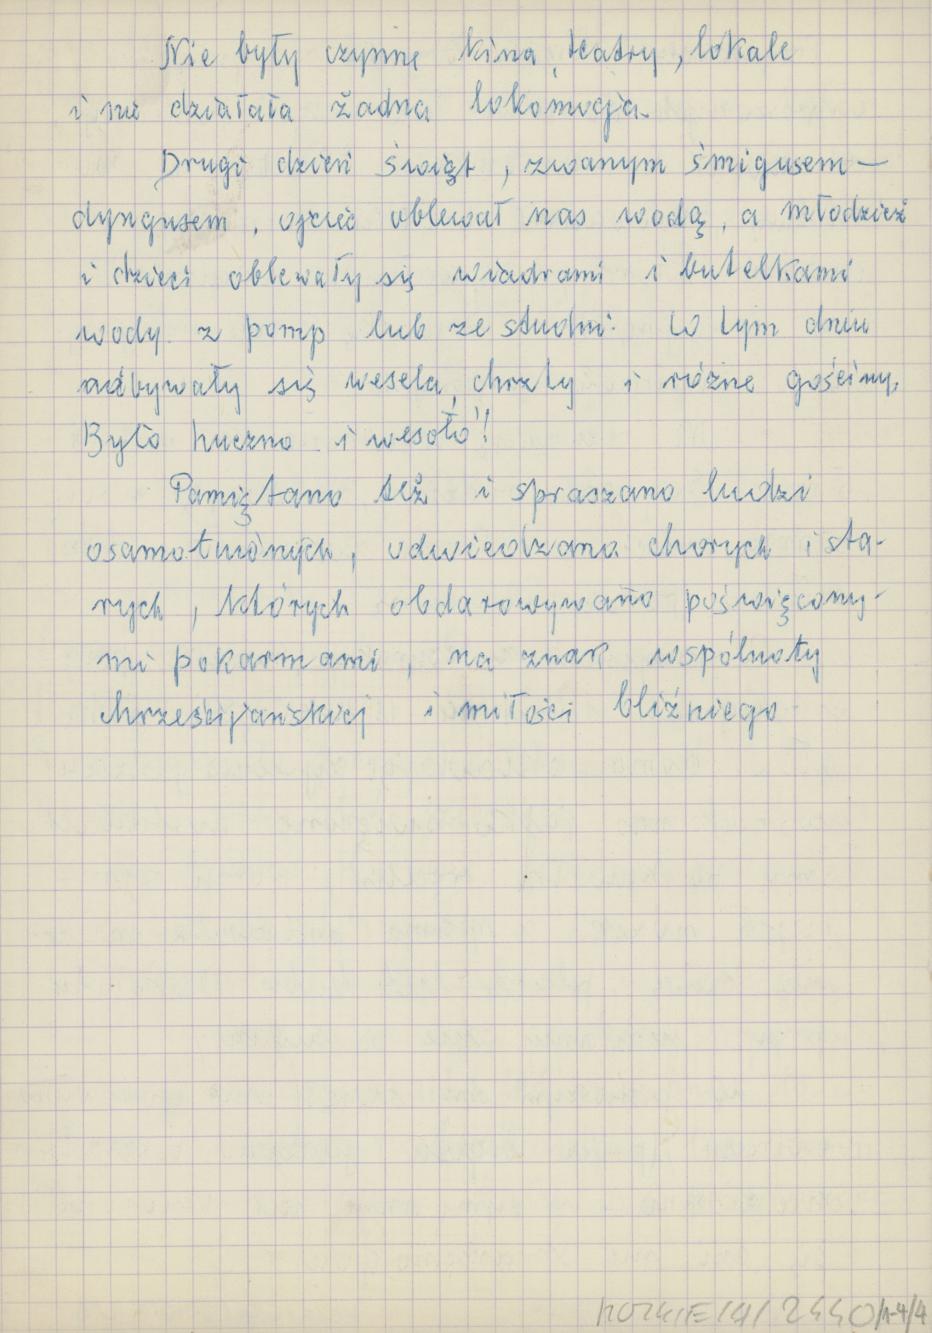 Nie były czynne kina, teatry, lokale
i nie działała żadna lokomocja.
Drugi dzień świąt, zwanym śmigusem –
dyngusem, ojciec oblewał nas wodą, a młodzież
i dzieci oblewały się wiadrami i butelkami
wody z pomp lub ze studni. W tym dniu
odbywały się wesela, chrzty i różne gościny.
Było huczno i wesoło!
Pamiętano też i spraszano ludzi
osamotnionych, odwiedzano chorych i sta-
rych, których obdarowywano poświęcony-
mi pokarmami, na znak wspólnoty
chrześcijańskiej i miłości bliźniego
2440/1-4/4